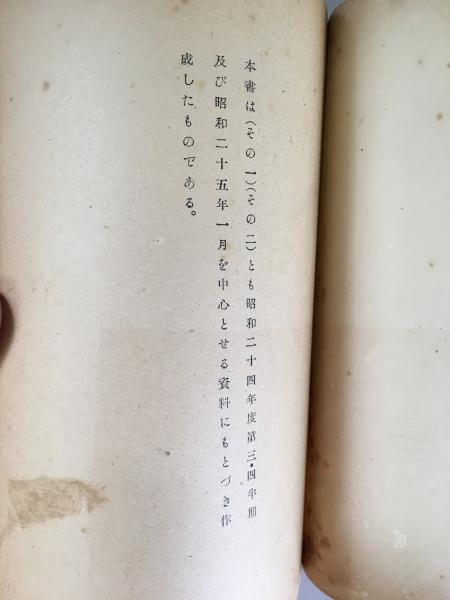 本書は（その一）（その二）とも昭和二十四年度第三・四半期
及び昭和二十五年一月を中心とせる資料にもとづき作
成したものである。